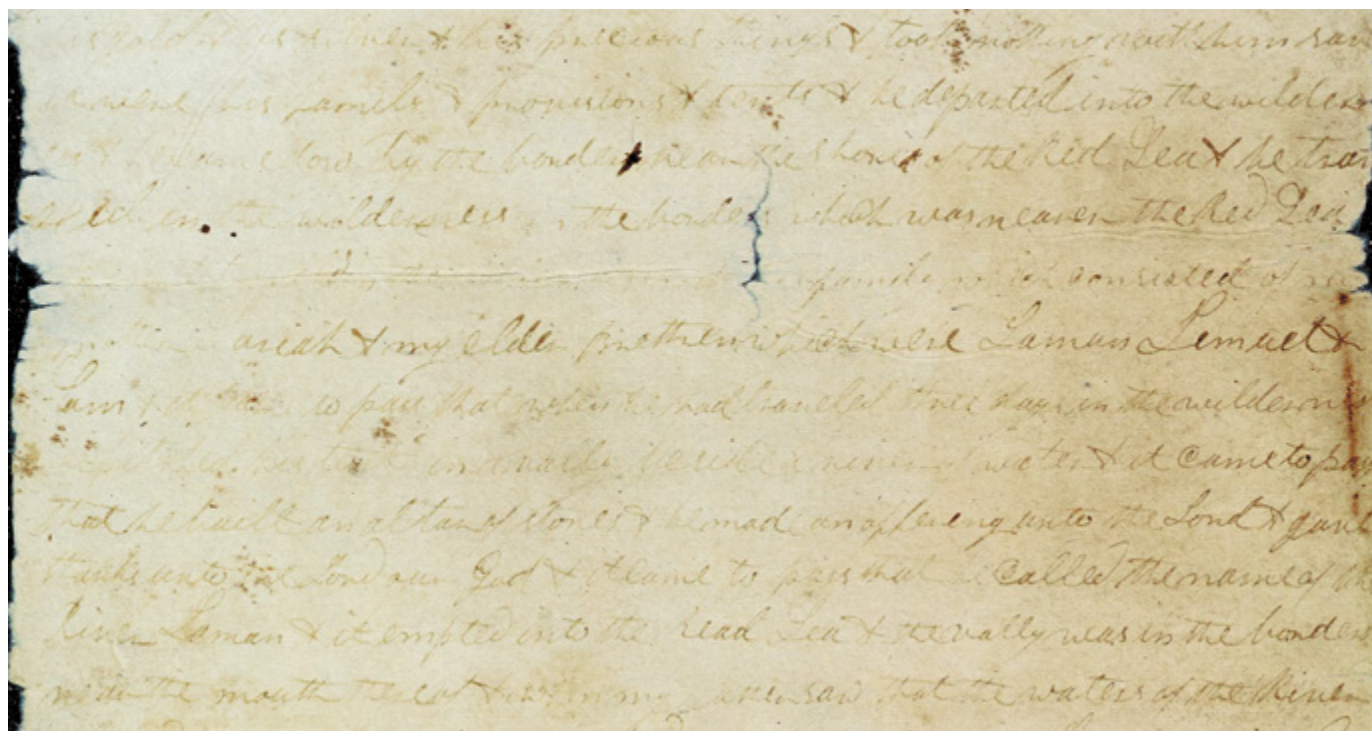 his gold & his silver & his precious things & took nothing with him sav
& his family & provisions & tents & he departed into the wildern
& he came down by the borders near the shore of the Red Sea & he trav
in the wilderness in the borders which was nearer the Red Sea
family which consisted of
ariah & my elder brethren which were Laman Lemuel &
Sam & it came to pass that when he had traveled three days in the wilderne
his tent in a vally beside a river of water & it came to pass
that he built an altar of stones & he mad an offering unto the Lord & gave
thanks unto the Lord our God & it came to pass that he called the name of the
River Laman & it emptied into the Read Sea & the vally was in the borders
near the mouth thereof & when my father saw that the waters of the River